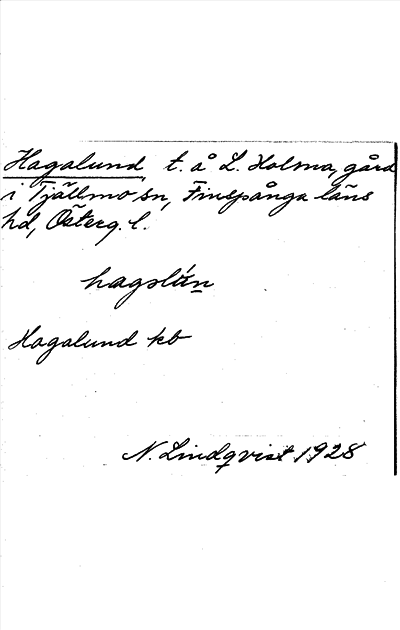 Hagalund t. å L. Holma, gård
i Tjällmo sn, Finspånga läns
hd, Österg. l.
Hagalund kb
N. Lindqvist 1928